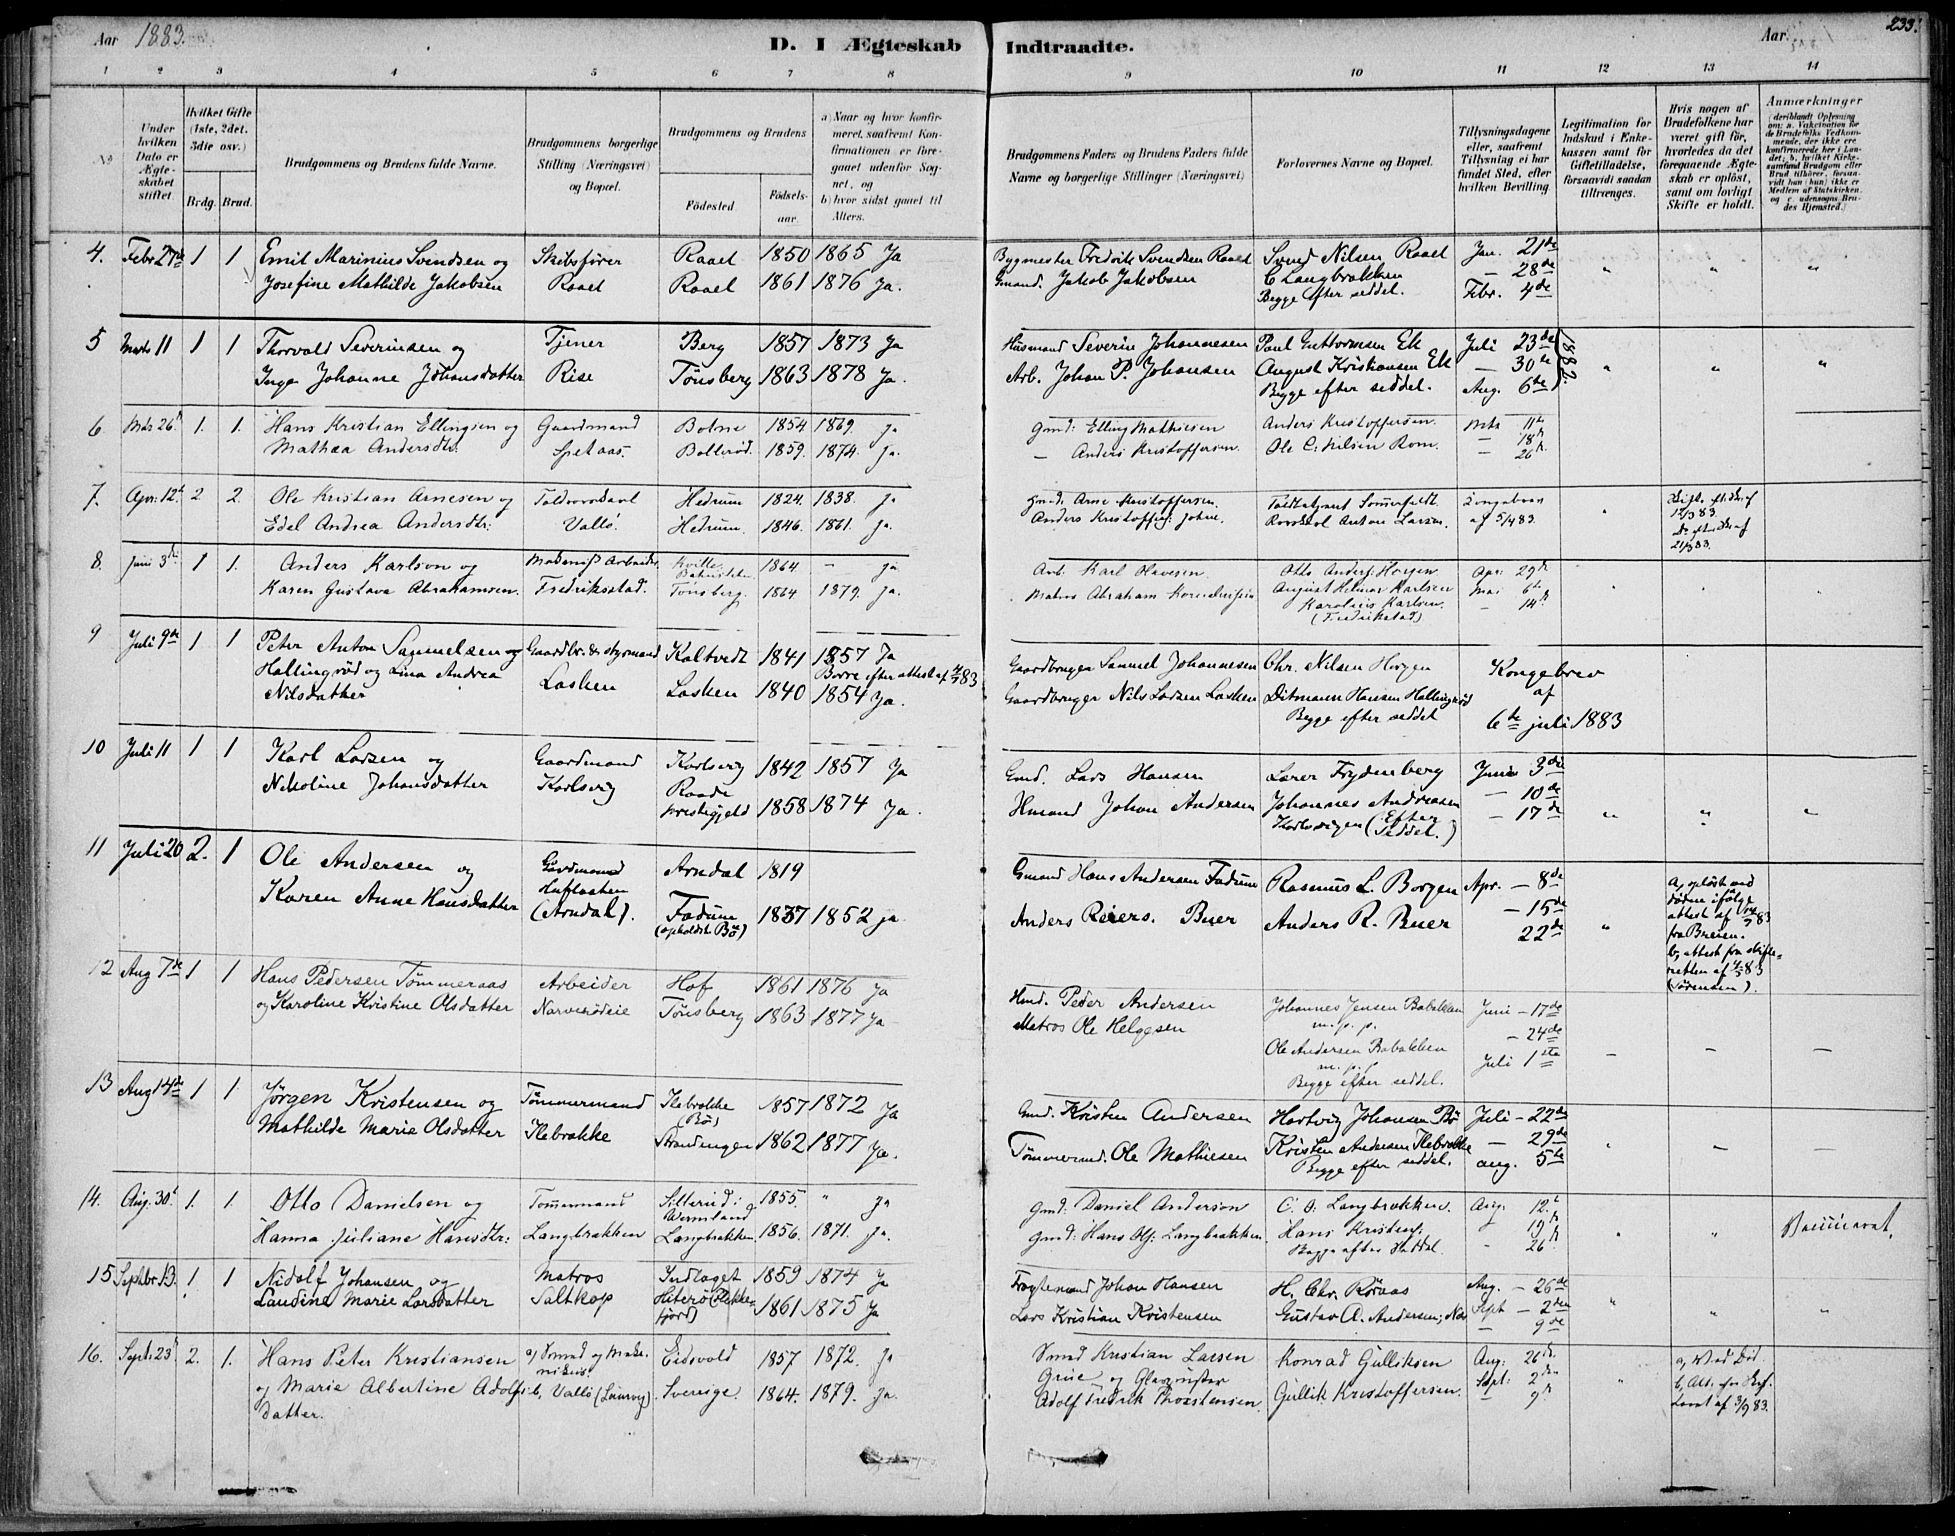 Aar 1883.
D. I Ægteskab Indtraadte.
Aar
233.
1 2 3 4 5 6 7 8 9 10 11 12 13 14
No
Under hvilken Dato er Ægteskabet stiftet.
Hvilket Gifte (1ste, 2det, 3die osv.)
Brdg. Brud.
Brudgommens og Brudens fulde Navne.
Brudgommens borgerlige Stilling (Næringsvei) og Bopæl.
Brudgommens og Brudens
Fødested. Fødselsaar.
a) Naar og hvor konfirmeret, saafremt Konfirmationen er foregaaet udenfor Sognet, og
b) hvor sidst gaaet til Alters.
Brudgommens Faders og Brudens Faders fulde Navne og borgerlige Stillinger (Næringsvei)
Forlovernes Navne og Bopæl.
Tillysningsdagene eller, saafremt Tillysning ei har fundet Sted, efter hvilken Bevilling.
Legitimation for Indskud i Enkekassen samt for Giftetilladelse, forsaavidt saadan tiltrænges.
Hvis nogen af Brudefolkene har været gift før, hvorledes da det foregaaende Ægteskab er opløst, samt om lovligt Skifte er holdt.
Anmærkninger (deriblandt Oplysning om: a. Vakcination for de Brudefolks Vedkommende, der ikke ere konfirmerede her i Landet; b. hvilket Kirkesamfund Brudgom eller Brud tilhører, forsaavidt han (hun) ikke er Medlem af Statskirken, og c. udensogns Brudes Hjemsted.)
4. Febr 27de 1 1 Emil Marinius Svendsen og Skibsfører Raael 1850 1865 Ja Bygmester Fredrik Svendsen Raael Svend Nilsen Raael Jan. 21de
Josefine Mathilde Jakobsen Raael Raael 1861 1876 Ja. Gmand. Jakob Jakobsen C Langbrækken — 28de
Begge efter seddel. Febr. 4de
5 Marts 11 1 1 Thorvald Severinsen og Tjener Berg 1857 1873 Ja Husmand Severin Johannesen Paul Guttormsen Ek Juli 23de 1882.
Inga Johanne Johansdatter Rise Tønsberg 1863 1878 Ja. Arb. Johan P. Johansen August Kristiansen Ek — 30te
Begge efter seddel. Aug. 6te
6 Mrts 26 1. 1. Hans Kristian Ellingsen og Gaardmand Botne 1854 1869. Ja Gmd: Elling Mathiesen Anders Kristoffersen. Mrts 11te
Mathea Andersdtr. Spetaas. Bollerød. 1859. 1874. Ja. — Anders Kristoffersen. Ole C. Nilsen Rom. — 18de
26de
7. Apr: 12te 2 2. Ole Kristian Arnesen og Toldroerskarl Hedrum 1824. 1838. Ja Gmd. Arne Kristoffersen. Kongebrev
Edel Andrea Andersdtr: Vallø. Hedrum. 1846. 1861. Ja. Anders Kristoffers: Anton Larsen. af 5/4 83. 21/3 83.
8. Juni 3de 1 1. Anders Karlson og Arbeider 1864 — Ja Arb. Karl Olavesen. Otto Anders: Horgen Apr: 29de
Karen Gustava Abrahamsen. Fredriksstad. Tønsberg. 1864 1879. Ja. Matros Abraham August Helmer Karlsen Mai 6te
Karolius Karlsen. — 14de
(Fredrikstad)
9 Juli 9de 1 1 Peter Anton Samuelsen og Gaardbr. & styrmand Kaltvedt 1841 1857 Ja Gaardbruger Samuel Johannesen Chr. Nilsen Horgen Kongebrev
Hallingrød og Lina Andrea Borre efter attest af 83 af
Nilsdatter Lasken Lasken 1840 1854 Ja. Gaardbruger Nils Larsen Lasken Ditmann Hansen Hallingrød
Begge efter seddel 6te juli 1883
10 Juli 11 1 1 Karl Larsen og Gaardmand Karlsvig 1842 1857 Ja Gmd. Lars Hansen Larer Frydenberg Juni 3de
Nikoline Johansdatter Karlsvig Raade prestegjeld 1858 1874 Ja. Hmand Johan Andersen Johannes Andreasen — 10de
Karlsvigen (Efter Seddel.) — 17de
11 Juli 20 2. 1 Ole Andersen og Gaardmand Arndal 1819 Gmand Hans Andersen Fadum Rasmus L. Borgen Apr. — 8de a, opløst ved døden ifølge attest af 83 fra Breien.
Karen Anne Hansdatter (Arndal). Fadum (opholdst. Bø) 1837 1852 ja Anders Reiers. Buer Anders R. Buer — 15de
22de b, attest fra skifteretten af 83 (Sørensen).
12 Aug 7de 1 1 Hans Pedersen Tømmeraas Arbeider Hof 1861 1876 Ja Hmd. Peder Andersen Johannes Jensen Babakken Juni — 17de
og Karoline Kristine Olsdatter Narverødeie Tønsberg 1863 1877 Ja Matros Ole Helgesen m. p. p. — 24de
Ole Andersen Babakken Juli 1ste
m. p. p.
Begge efter seddel.
13 Aug 14de 1 1. Jørgen Kristensen og Tømmermand Ilebrække (Bø) 1857 1872 Ja Gmd. Kristen Andersen Hartvig Johansen Bø Juli — 22de
Mathilde Marie Olsdatter Ilebrække Strandengen 1862 1877 Ja. Tømmermd. Ole Mathiesen Kristen Andersen Ilebrække — 29de
Begge efter seddel. aug. 5te
14. Aug: 30te 1. 1. Otto Danielsen og Tømmermand Sillerud i Wermland 1855. " Ja Gmd: Daniel Anderson C. O. Langbrækken. Aug. 12te
Hanna Juliane Hansdtr: Langbrækken Langbrækken. 1856. 1871. Ja. Gmd: Hans Ols: Langbrækken Hans Kristens: 19de Vaccineret.
Begge efter Seddel. — 26de
15 Septbr 13. 1. 1 Nidolf Johansen og Matros Indlaget 1859 1874 Ja Fragtemand Johan Hansen H. Chr. Røraas Aug. — 26de
Laudine Marie Larsdatter Saltkop Hiterø (Flekkefjord) 1861 1875 Ja Lars Kristian Kristensen Gustav A. Andersen, Sept — 2den
9de
16. Sept: 23de 2. 1. Hans Peter Kristiansen a) Smed og Eidsvold 1857 1872. Ja Smed Kristian Larsen Konrad Gulliksen Aug: 26de
og Marie Albertine Adolfs- b, Vallø (Laurvig). Sverige. 1864. 1879. Ja. Adolf Fredrik Thorstensen. Gullik Kristoffersen. Sept: 2den
datter. — 9de af 3/9 83.